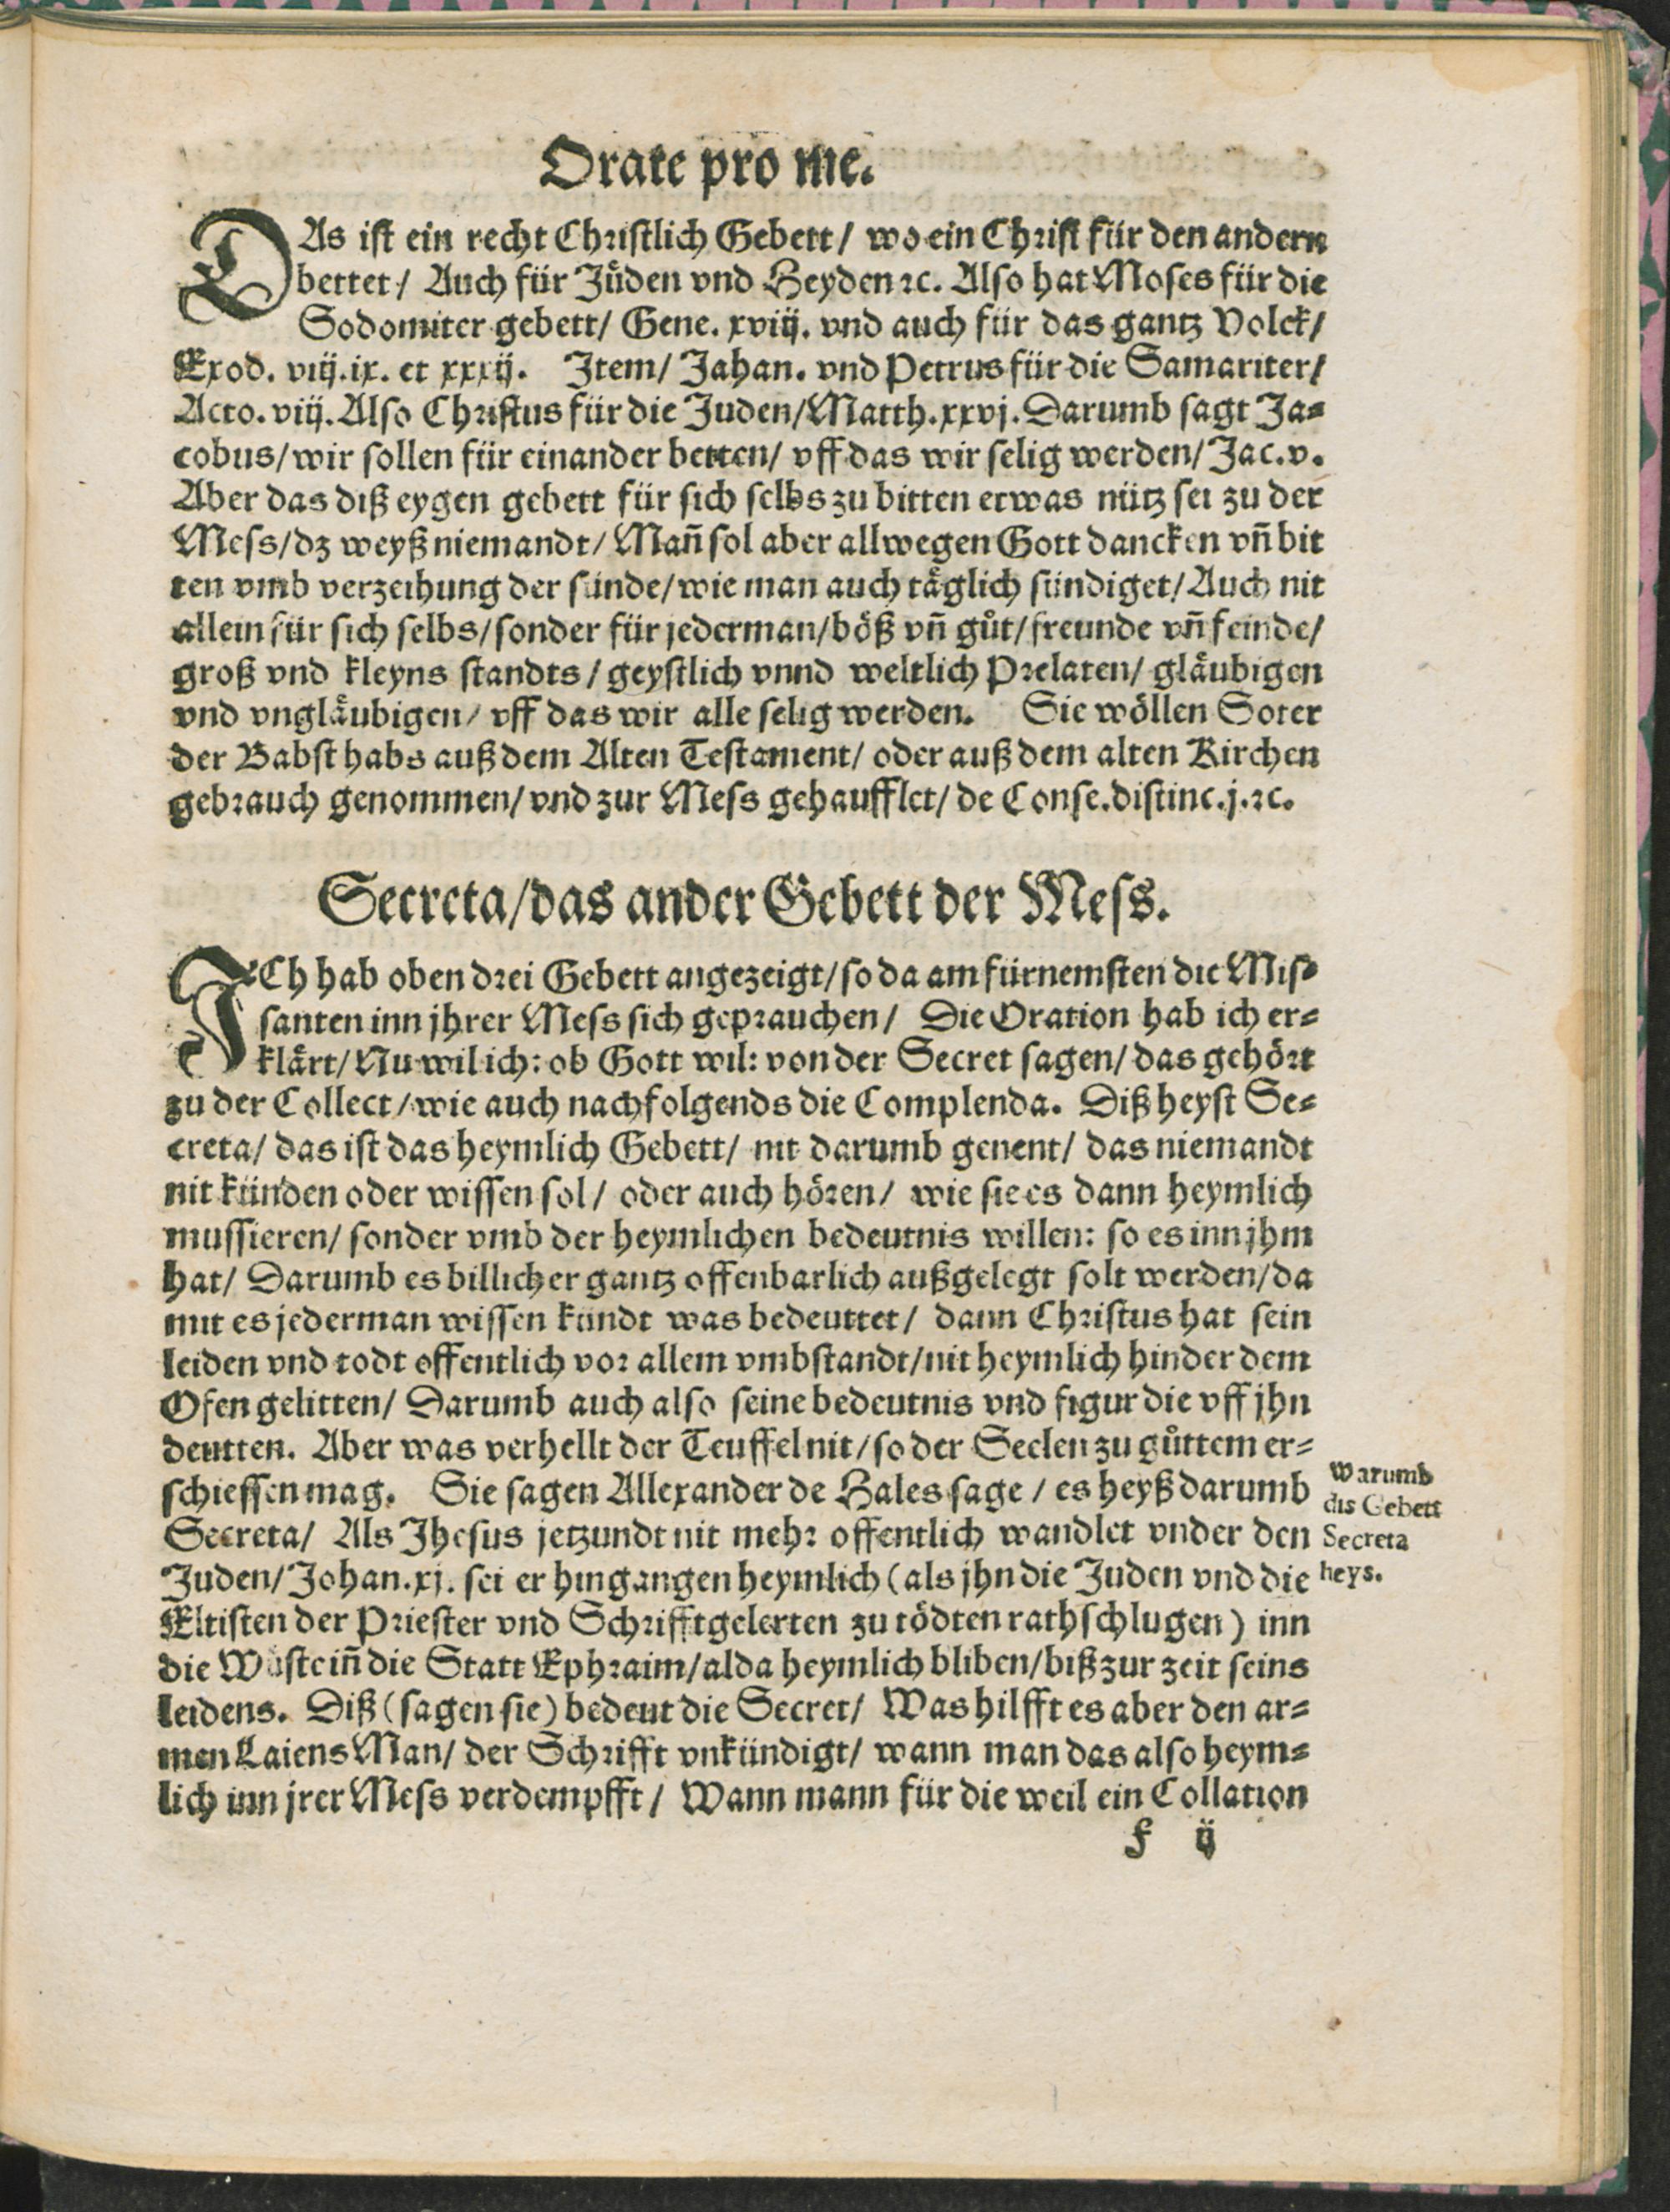 Orate pro me.
DAs ist ein recht Christlich Gebett / wo ein Christ für den andern
bettet / Auch für Jůden vnd Heyden ꝛc. Also hat Moses für die
Sodomiter gebett / Gene. xviij. vnd auch für das gantz Volck /
Exod. viij. ix. et xxxij. Item / Jahan. vnd Petrus für die Samariter /
Acto. viij. Also Christus für die Juden / Matth. xxvj. Darumb sagt Ja⸗
cobus / wir sollen für einander betten / vff das wir selig werden / Jac. v.
Aber das diß eygen gebett für sich selbs zu bitten etwas nütz sei zu der
Mess / dz weyß niemandt / Mañ sol aber allwegen Gott dancken vñ bit
ten vmb verzeihung der sünde / wie man auch täglich sündiget / Auch nit
allein für sich selbs / sonder für jederman / böß vñ gůt / freunde vñ feinde /
groß vnd kleyns standts / geystlich vnnd weltlich Prelaten / gläubigen
vnd vngläubigen / vff das wir alle selig werden. Sie wöllen Soter
der Babst habs auß dem Alten Testament / oder auß dem alten Kirchen
gebrauch genommen / vnd zur Mess gehaufflet / de Conse. distinc. j. ꝛc.
Secreta / das ander Gebett der Mess.
ICh hab oben drei Gebett angezeigt / so da am fürnemsten die Mis⸗
santen inn jhrer Mess sich geprauchen / Die Oration hab ich er⸗
klärt / Nu wil ich: ob Gott wil: von der Secret sagen / das gehört
zu der Collect / wie auch nachfolgends die Complenda. Diß heyst Se⸗
creta / das ist das heymlich Gebett / nit darumb genent / das niemandt
nit künden oder wissen sol / oder auch hören / wie sie es dann heymlich
mussieren / sonder vmb der heymlichen bedeutnis willen: so es inn jhm
hat / Darumb es billicher gantz offenbarlich außgelegt solt werden / da
mit es jederman wissen kündt was bedeuttet / dann Christus hat sein
leiden vnd todt offentlich vor allem vmbstandt / nit heymlich hinder dem
Ofen gelitten / Darumb auch also seine bedeutnis vnd figur die vff jhn
deutten. Aber was verhellt der Teuffel nit / so der Seelen zu gůttem er⸗
schiessen mag. Sie sagen Allexander de Hales sage / es heyß darumb
Secreta / Als Jhesus jetzundt nit mehr offentlich wandlet vnder den
Juden / Johan. xj. sei er hingangen heymlich (als jhn die Juden vnd die
Eltisten der Priester vnd Schrifftgelerten zu tödten rathschlugen) inn
die Wüste iñ die Statt Ephraim / alda heymlich bliben / biß zur zeit seins
leidens. Diß (sagen sie) bedeut die Secret / Was hilfft es aber den ar⸗
men Laiens Man / der Schrifft vnkündigt / wann man das also heym⸗
lich inn jrer Mess verdempfft / Wann mann für die weil ein Collation
f ij
Warumb
dis Gebett
Secreta
heys.